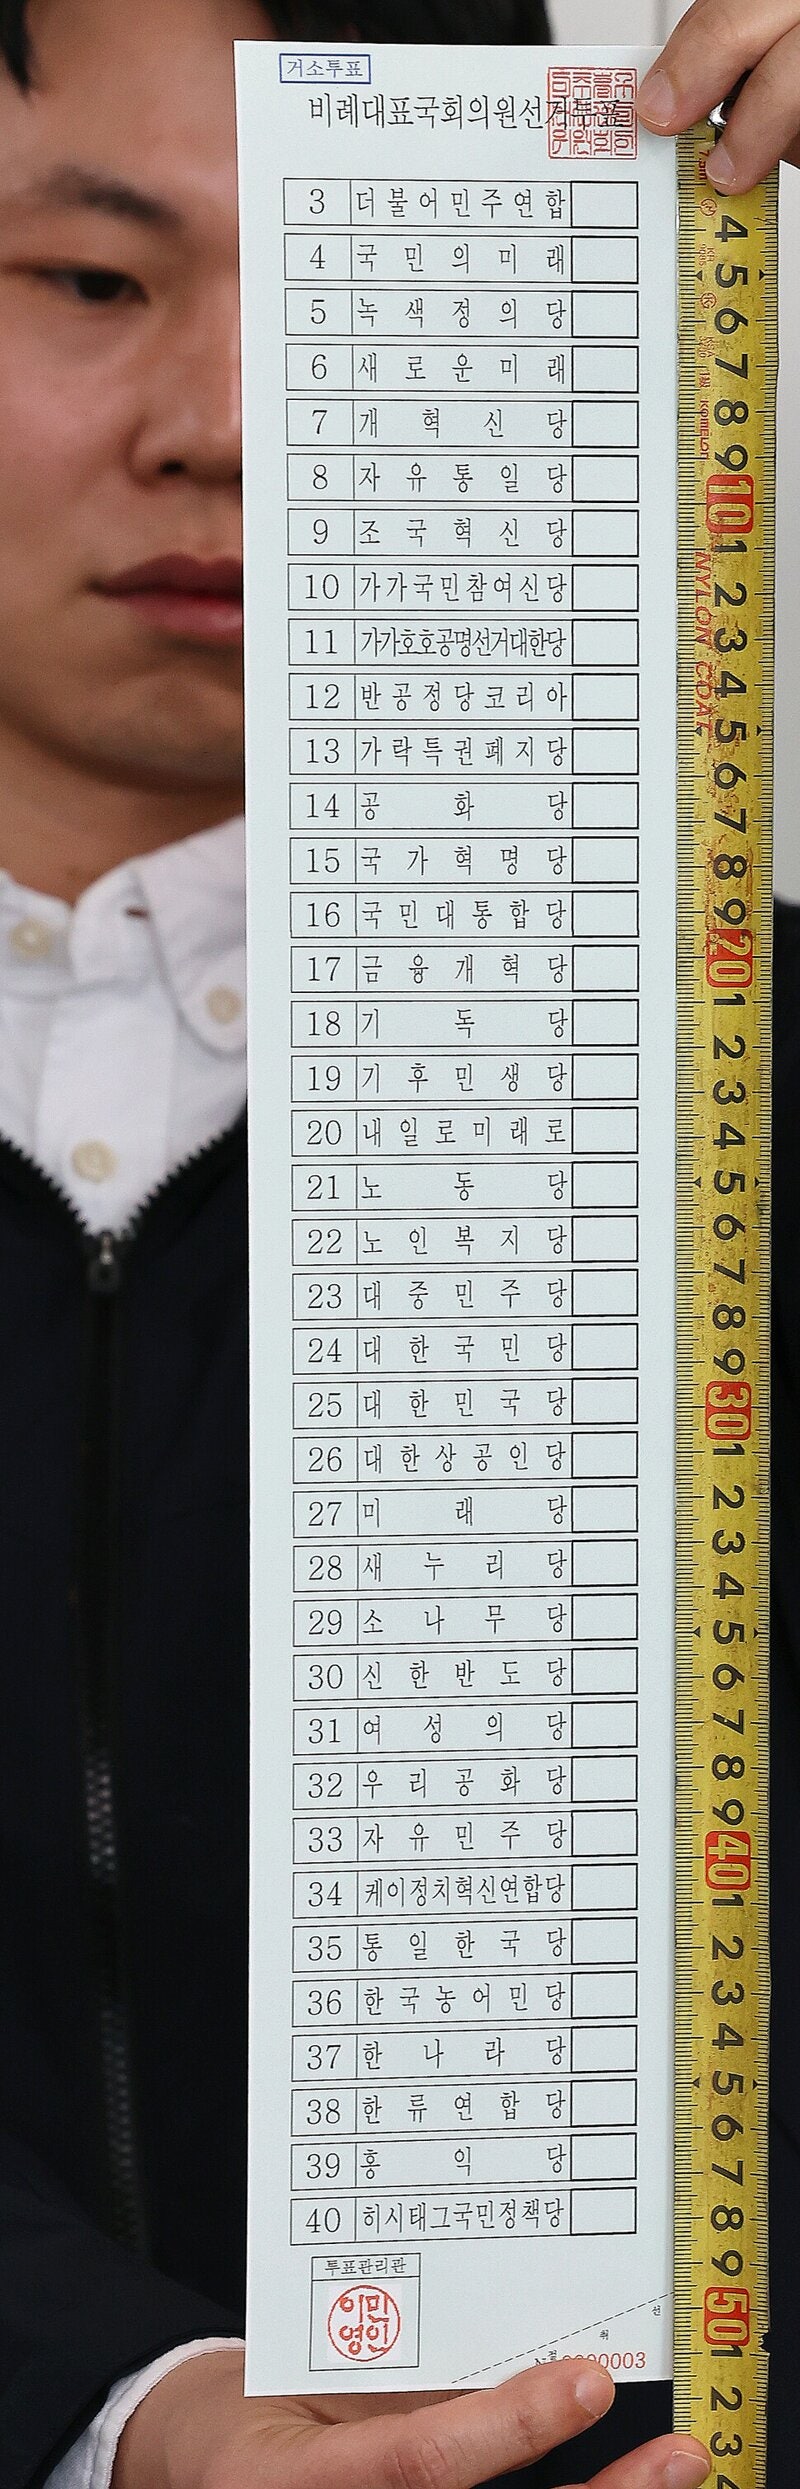 거소투표
비례대표국회의원선거투표
3 더불어민주연합
4 국민의미래
5 녹색정의당
6 새로운미래
7 개혁신당
8 자유통일당
9 조국혁신당
10 가가국민참여신당
11 가가호호공명선거대한당
12 반공정당코리아
13 가락특권폐지당
14 공화당
15 국가혁명당
16 국민대통합당
17 금융개혁당
18 기독당
19 기후민생당
20 내일로미래로
21 노동당
22 노인복지당
23 대중민주당
24 대한국민당
25 대한민국당
26 대한상공인당
27 미래당
28 새누리당
29 소나무당
30 신한반도당
31 여성의당
32 우리공화당
33 자유민주당
34 케이정치혁신연합당
35 통일한국당
36 한국농어민당
37 한나라당
38 한류연합당
39 홍익당
40 히시태그국민정책당
투표관리관
이민
영인
절 취 선
4 5 6 7 8 9 10 1 2 3 4 5 6 7 8 9 20 1 2 3 4 5 6 7 8 9 30 1 2 3 4 5 6 7 8 9 40 1 2 3 4 5 6 7 8 9 50 1 2 3 4
NYLON COAT